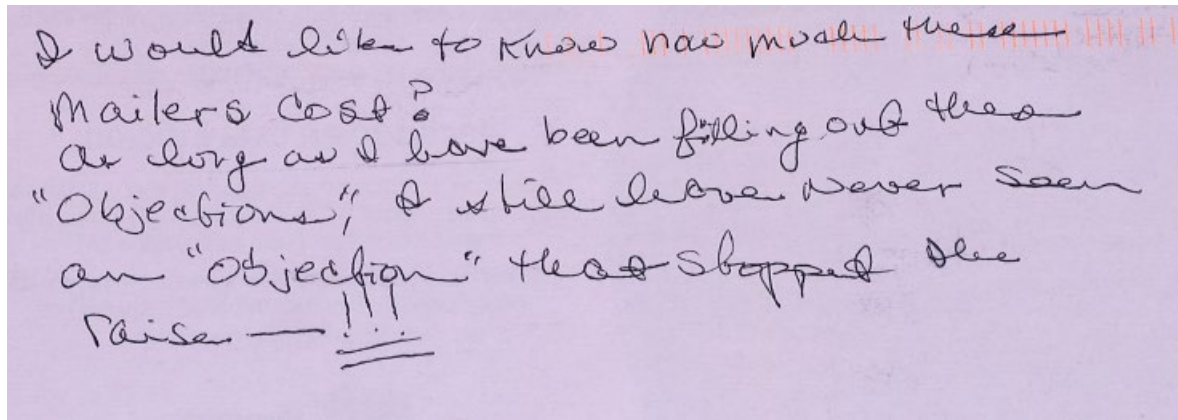 I would like to know how much these
mailers cost?
As long as I have been filling out these
"Objections", I still have never seen
an "Objection" that stopped the
raise — !!!